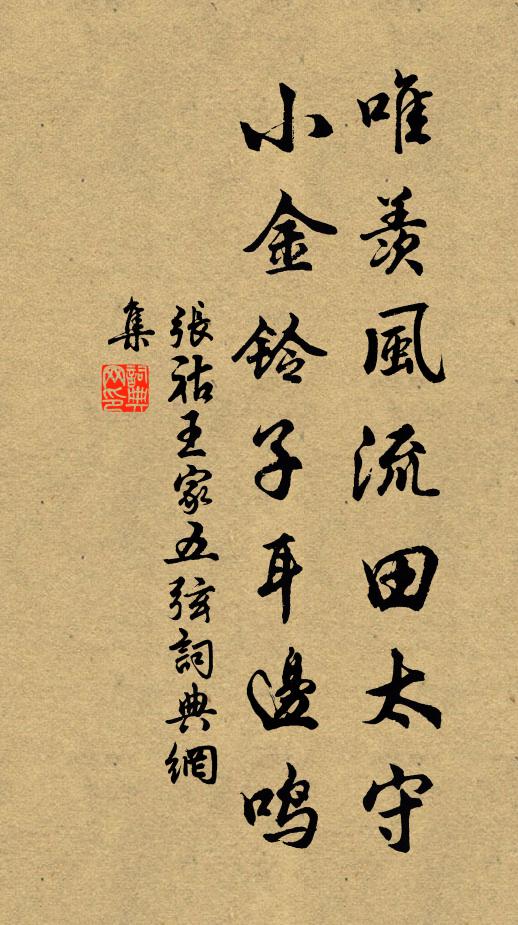 唯羨風流田太守
小金鈴子耳邊鳴
張祜王家五弦詞典網
集
詞典
网印